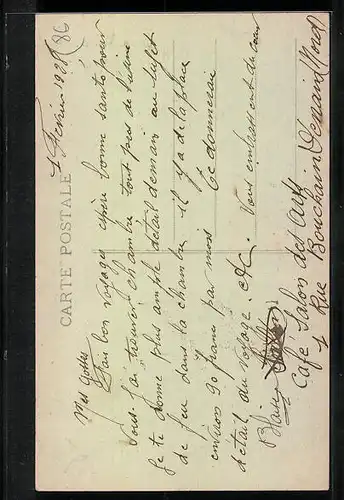 CARTE POSTALE
4 Février 1928
Mes Gosses
Fait bon voyage espère bonne santé pour
vous. J'ai trouver chambre tout près de l'usine
Je te donne plus ample détail demain au sujet
de feu dans la chambre il y a de la place
environ 90 francs par mois Je donnerai
détail du voyage. etc. Vous embrassent du cœur
Blaise
Café Salon des Arts
4 Rue Bouchain Denain (Nord)